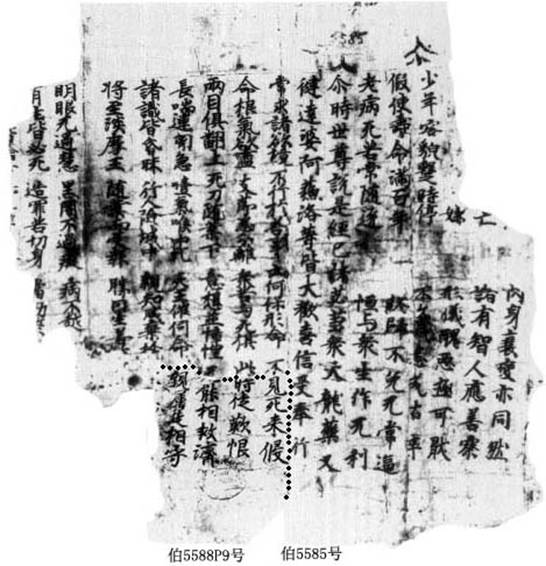 內身衰變亦同然
諸有智人應善察
形儀醜惡極可厭
少年容貌暫時停
假使壽命滿百年
不免无常逼
老病死苦常隨逐 恒与衆生作无利
尒時世尊說是經已諸苾芻衆天龍藥叉
揵達婆阿蘇洛等皆大歡喜信受奉行
常求諸欲境 不行於善事 云何保形命 不見死来侵
命根氣欲盡 支節悉分離 衆苦与死俱 此時徒歎恨
兩目俱翻上 死刀隨業下 意想並慞惶 无能相救濟
長喘連胷急 噎氣喉中乾 死王催伺命 親屬徒相守
諸識皆昏昧 行入險城中 親知咸棄捨
將至琰魔王 隨業而受報 勝因生善
明眼无過慧 黑闇不過癡 病不越
有生皆必死 造罪苦切身
伯5588P9号 伯5585号